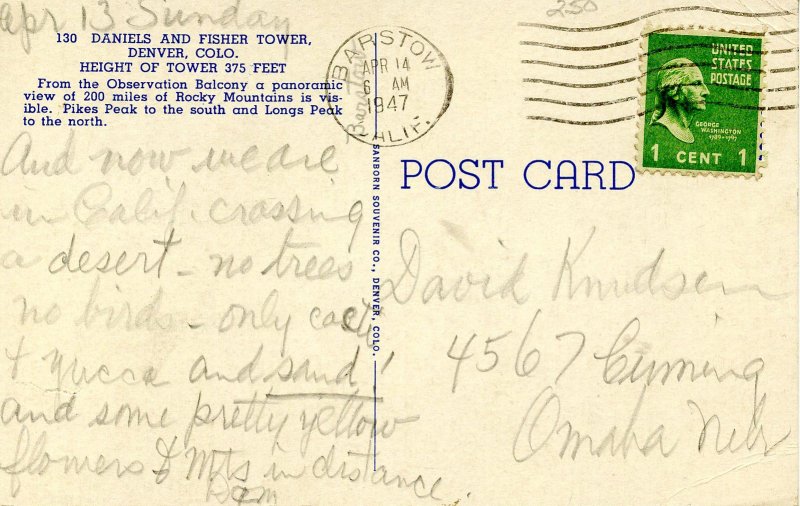 Apr 13 Sunday
250
130 DANIELS AND FISHER TOWER,
DENVER, COLO.
HEIGHT OF TOWER 375 FEET
From the Observation Balcony a panoramic
view of 200 miles of Rocky Mountains is vis-
ible. Pikes Peak to the south and Longs Peak
to the north.
And now we are
in Calif. crossing
a desert - no trees
no birds - only cacti
& Yucca and sand!
and some pretty yellow
flowers & Mts in distance.
BARSTOW
APR 14
6 AM
1947
CALIF.
Barstow
SANBORN SOUVENIR CO., DENVER, COLO.
UNITED
STATES
POSTAGE
GEORGE
WASHINGTON
1789-1797
1 CENT 1
POST CARD
David Knudsen
4567 Cuming
Omaha Nebr